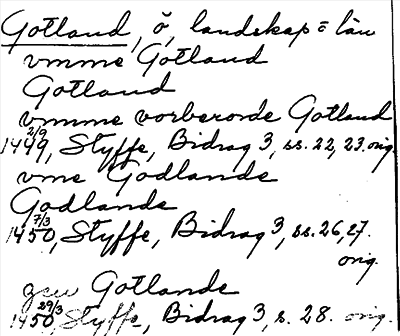 Gotland, ö, landskap o län
vmme Gotland
Gotland
vmme vorberorde Gotland
1449 2/9, Styffe, Bidrag 3, ss. 22, 23. orig.
vme Godlande
Godlande
1450 7/3, Styffe, Bidrag 3, ss. 26, 27.
orig.
zcu Gotlande
1450 29/3, Styffe, Bidrag 3, s. 28. orig.